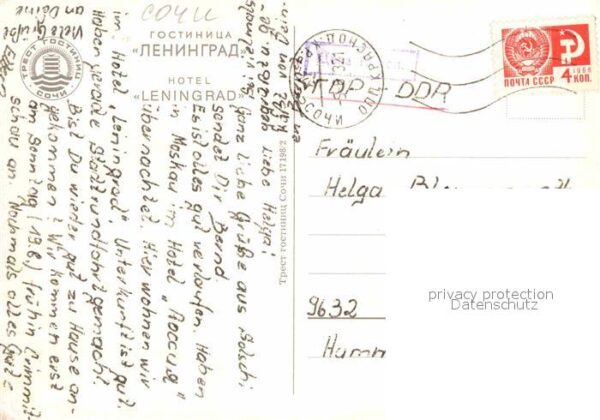 СОЧИ
ГОСТИНИЦА
«ЛЕНИНГРАД»
HOTEL
«LENINGRAD»
ТРЕСТ ГОСТИНИЦ
СОЧИ
Трест гостиниц Сочи 17198/2
Liebe Helga!
Ganz liebe Grüße aus Sotschi
sendet Dir Bernd.
Es ist alles gut verlaufen. Haben
in Moskau im Hotel „Россия“
übernachtet. Hier wohnen wir
im Hotel „Leningrad“. Unterkunft ist gut.
Haben gerade Stadtrundfahrt gemacht.
Bist Du wieder gut zu Hause an-
gekommen? Wir kommen erst
am Sonntag (19.8.) früh in
schau an. Nochmals alles
Viele Grüße
an Deine
Eltern
СОЧИ
ПОЧТА СССР
1966
4 КОП.
ГДР DDR
Fräulein
Helga
9632
privacy protection
Datenschutz